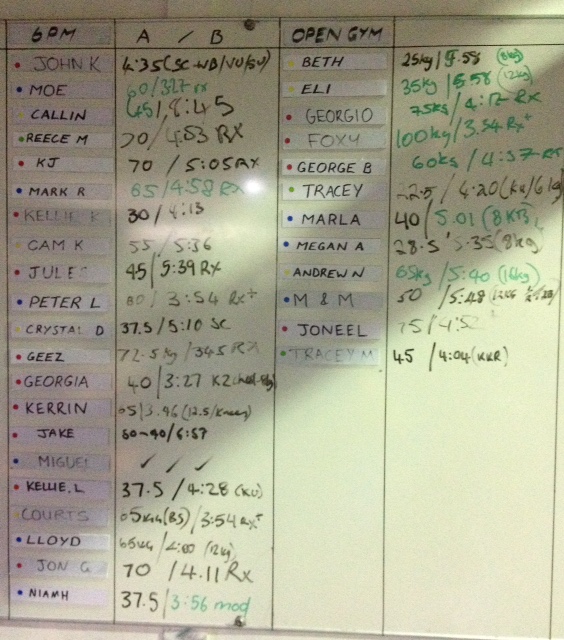 6PM A / B
JOHN K 4:35
MOE 60/3:27 rx
CALLIN 45/8:45
REECE M 70/4:53 RX
KJ 70 / 5:05 RX
MARK R 65/4:58 Rx
KELLIE K 30/4:13
CAM K 55/5:36
JULES 45/5:39 Rx
PETER L 80/3:54 Rx+
CRYSTAL D 37.5/5:10 SC
GEEZ 72.5kg/345 RX
GEORGIA 40/3:27
KERRIN (12.5/Knees)
JAKE
MIGUEL ✓ ✓ ✓
KELLIE.L 37.5/4:28 (KU)
COURTS 65kg(BS)/3:54 Rx+
LLOYD 65kg/4:00 (12kg)
JON G 70 /4.11 Rx
NIAMH 37.5/3:56 mod
OPEN GYM
BETH 25kg/5.58 (8kg)
ELI 35kg/5.58 (12kg)
GEORGIO 75ks/4:12 Rx
FOXY 100kg/3.54 Rx+
GEORGE B 60ks/4:37 RX
TRACEY 22.5/4:20
MARLA 40/5.01 (8KB)
MEGAN A 28.5 5:35(8kg)
ANDREW N 65kg/5:40 (16kg)
M & M 50 /5:48
JONEEL 75/4:52
TRACEY M 45 /4:04